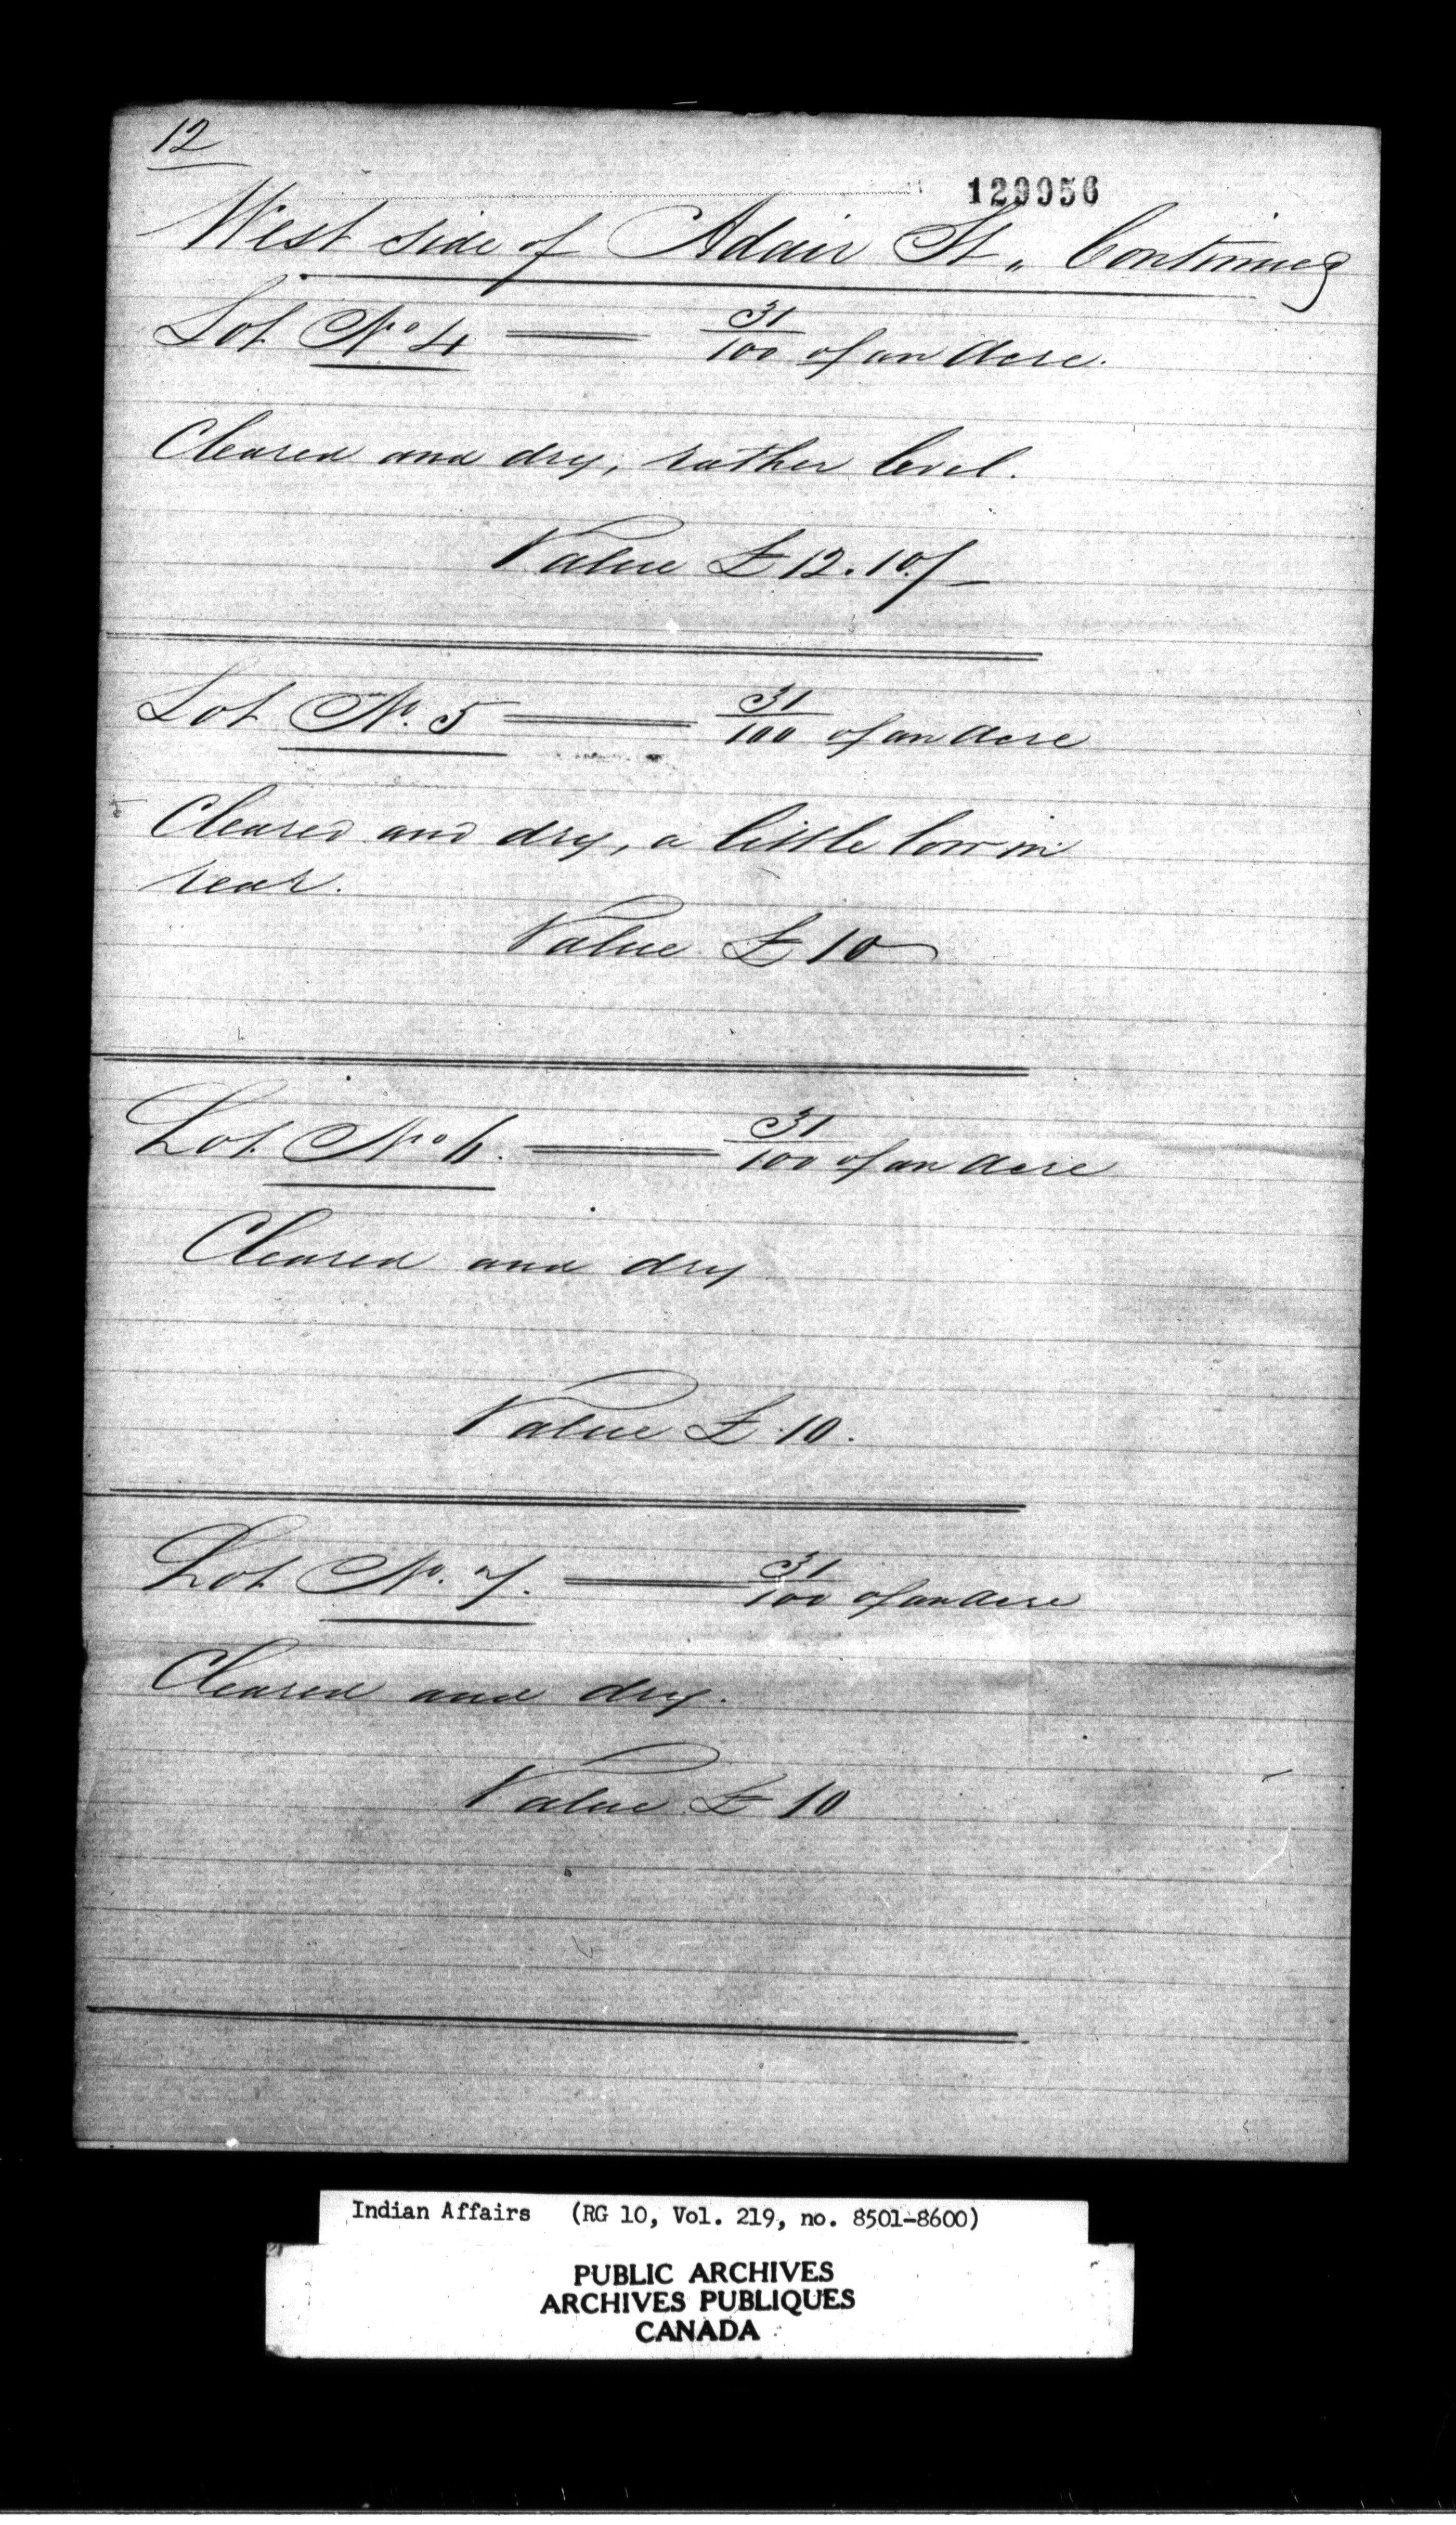 12
129956
West side of Adair St, Continued
Lot No 4 31/100 of an Acre.
Cleared and dry, rather level.
Value £ 12.10/-
Lot No. 5 31/100 of an Acre
Cleared and dry, a little low in
rear.
Value £ 10
Lot No 6. 31/100 of an Acre
Cleared and dry
Value £ 10.
Lot No. 7. 31/100 of an Acre
Cleared and dry.
Value £ 10
Indian Affairs (RG 10, Vol. 219, no. 8501-8600)
PUBLIC ARCHIVES
ARCHIVES PUBLIQUES
CANADA